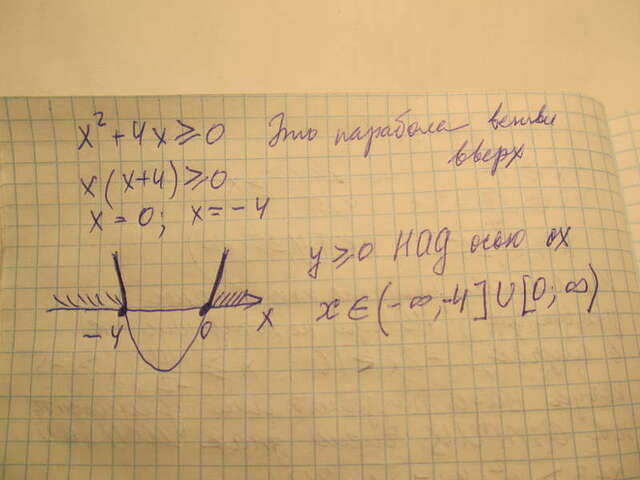 x² + 4x ≥ 0 Это парабола ветви
вверх
x(x+4) ≥ 0
x = 0; x = -4
y ≥ 0 НАД осью ox
x ∈ (-∞; -4] ∪ [0; ∞)
-4 0 x